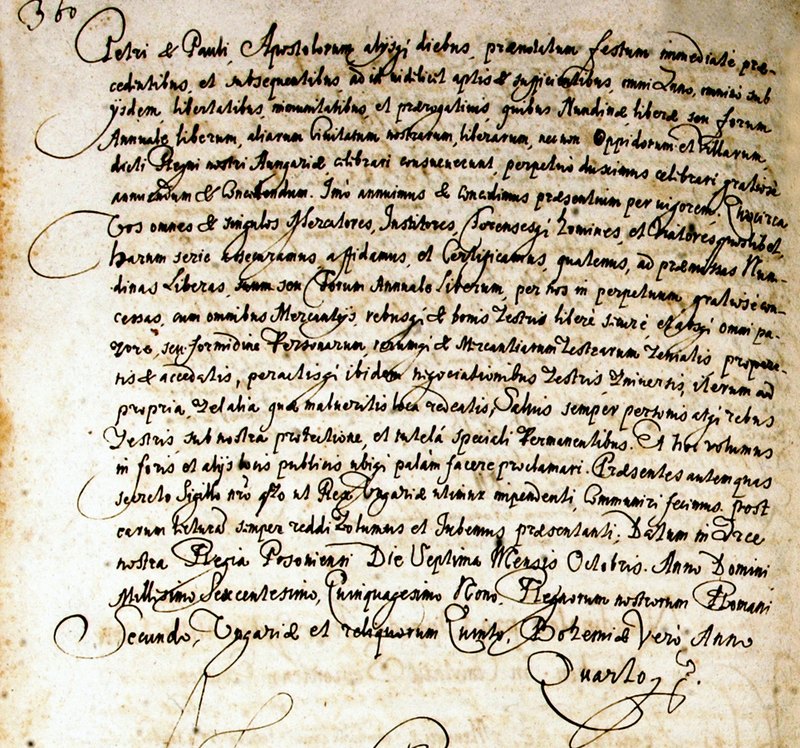 360
Petri & Pauli, Apostolorum alysqꝫ diebus, prænotatum festum immediatè præ-
cedentibus, et subsequentibus, ad id videlicet aptis & sufficientibus, omni Anno, omninò sub
ysdem, libertatibus, immunitatibus, et prærogativis, quibus Nundinæ liberæ seu forum
Annuale liberum, aliarum Civitatum nostrarum, liberarum, necnon Oppidorum et Villarum
dicti Regni nostri Hungariæ celebrari consueverunt, perpetuò duximus celebrari gratiosè
annuendum & Concedendum. Imò annuimus & concedimus præsentium per vigorem. Quocirca
Vos omnes & singulos Mercatores, Institores, Forensesqꝫ homines, et Viatores quoslibet,
harum serie assecuramus, affidamus, et Certificamus quatenus, ad præmissas Nun-
dinas Liberas, sivem seu Forum Annuale Liberum, per nos in perpetuum, gratiosè con-
cessas, cum omnibus Mercantys, rebusqꝫ & bonis Vestris liberè securè et absqꝫ omni pa-
vore, seu formidine Personarum, rerumqꝫ & Mercantiarum Vestrarum Veniatis propere-
tis & accedatis, peractisqꝫ ibidem negociationibus Vestris Universis, iterum ad
propria, Vel alia quæ malueritis loca redeatis, Salvis semper personis atqꝫ rebus
Vestris sub nostra protectione, et tutelâ speciali Permanentibus. Et hoc volumus
in foris et alys locis publicis ubiqꝫ palàm facere proclamari. Præsentes autem quas
secreto Sigillo nrō qꝫo ut Rex Ungariæ utimur inpendenti, Communiri fecimus. post
earum lecturam semper reddi Volumus et Iubemus præsentanti. Datum in Arce
nostra Regia Posoniensi Die Septima Mensis Octobris. Anno Domini
Millesimo Sexcentesimo, Quinquagesimo Nono, Regnorum nostrorum Romani
Secundo, Ungariæ et reliquorum Quinto, Bohemiæ Verò Anno
Quarto